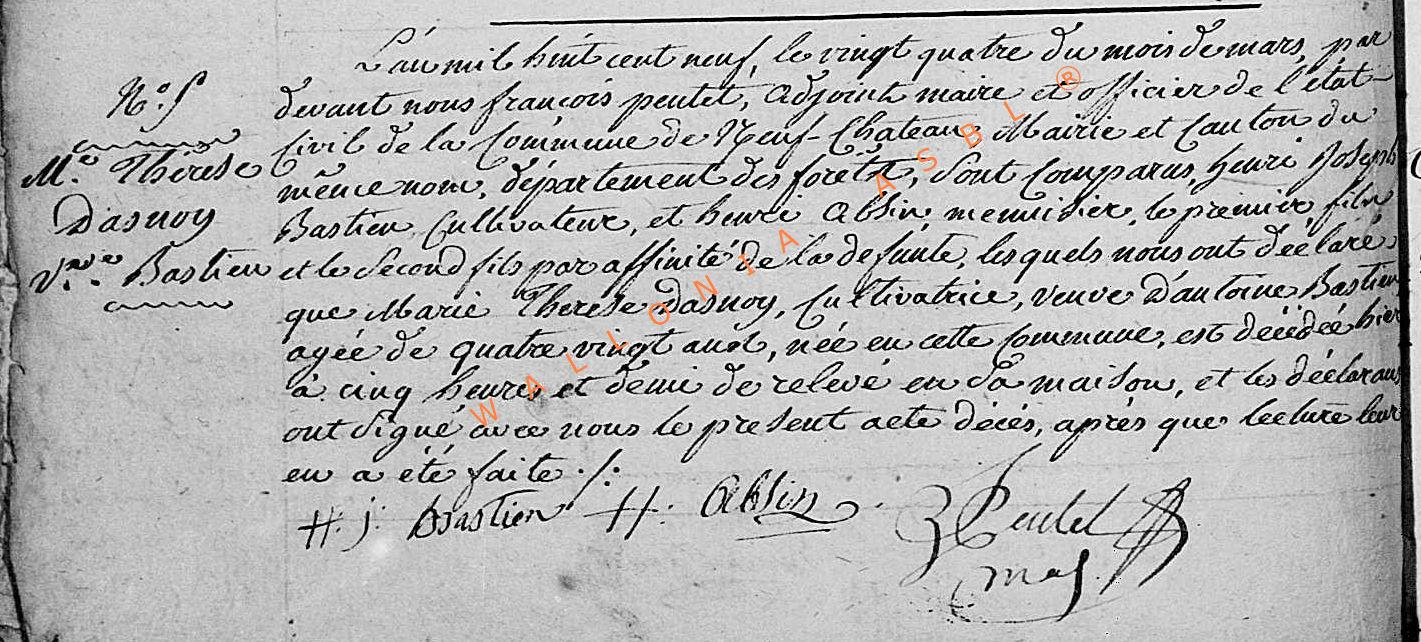 L'an mil huit cent neuf, le vingt quatre du mois de mars, par
N.o 5
devant nous françois peutet, adjoint maire et officier de l'état-
civil de la Commune de Neuf-Chateau, Mairie et Canton du
M.e Thérèse
même nom, département des forêts, sont comparus, henri Joseph
Dasnoy
Bastien Cultivateur, et henri Absin, menuisier, le premier, fils
V.ve Bastien
et le second fils par affinité de la defunte, les quels nous ont déclaré
que Marie Therese Dasnoy, Cultivatrice, veuve d'antoine Bastien
agée de quatre vingt ans, née en cette Commune, est décédée hier
à cinq heures et demi de relevé en sa maison, et les déclarans
ont signé avec nous le present acte décés, aprés que lecture leur
en a été faite ./.
H. j. Bastien H. Absin
Peutet
WALLONIA ASBL ®